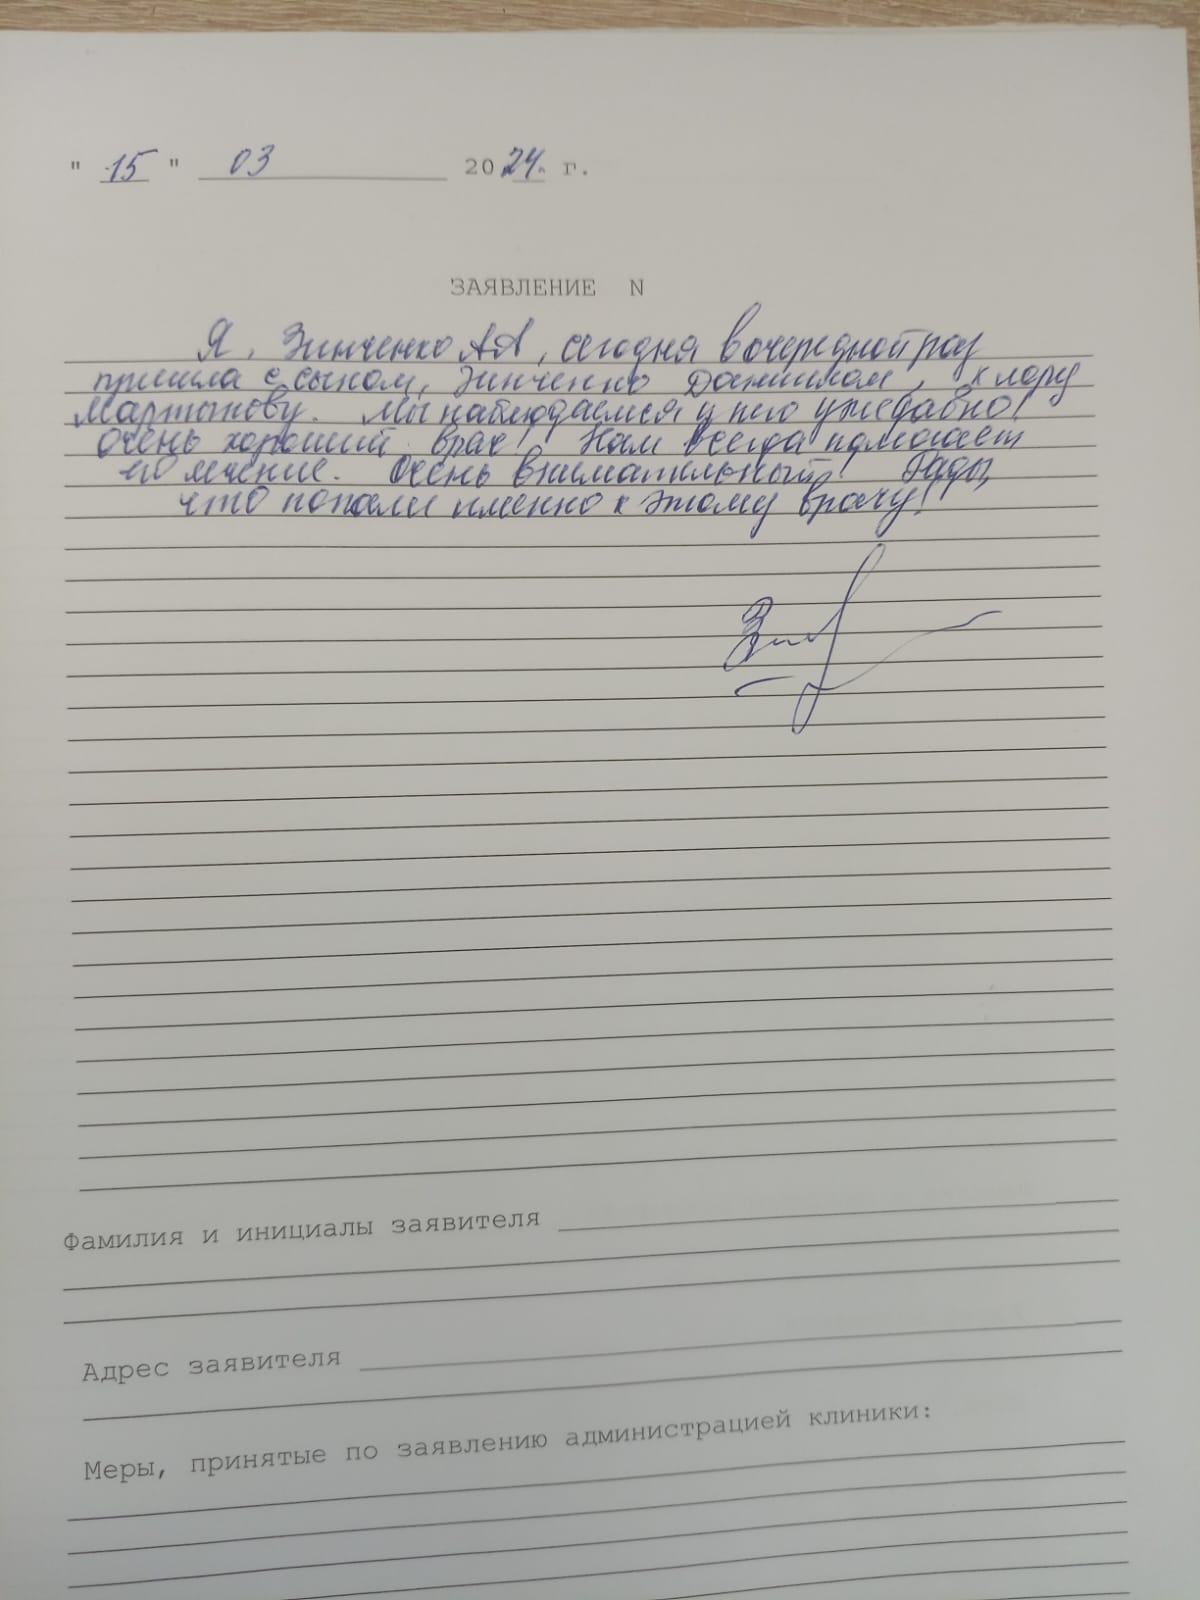 " 15 " 03 2024 г.
ЗАЯВЛЕНИЕ N
Я, Зинченко А А, сегодня в очередной раз
пришла с сыном, Зинченко Даниилом, к лору
Мартынову. Мы наблюдаемся у него уже давно!
Очень хороший врач! Нам всегда помогает
его лечение. Очень внимательный! Рады,
что попали именно к этому врачу!
Фамилия и инициалы заявителя
Адрес заявителя
Меры, принятые по заявлению администрацией клиники: